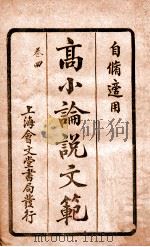 自備適用
高小論說文範
卷四
上海會文堂書局發行
www.modubook.com